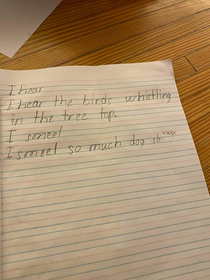 I hear
I hear the birds whistling
in the tree top.
I smeel
I smeel so much dog